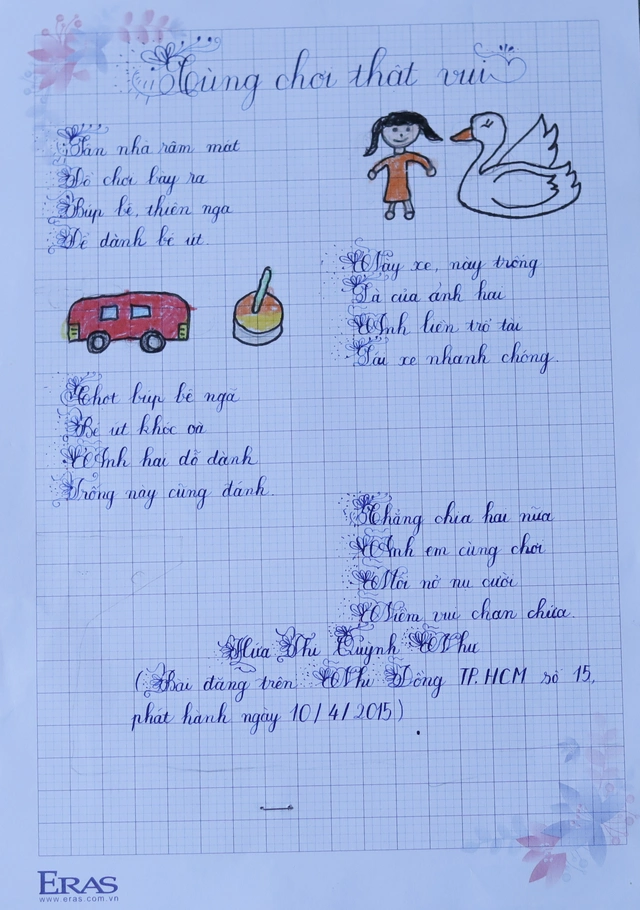 Cùng chơi thật vui
Sân nhà râm mát
Đồ chơi bày ra
Búp bê, thiên nga
Để dành bé út.
Này xe, này trống
Là của anh hai
Anh liền trổ tài
Lái xe nhanh chóng.
Chợt búp bê ngã
Bé út khóc oà
Anh hai dỗ dành
Trống này cùng đánh.
Chẳng chia hai nữa
Anh em cùng chơi
Môi nở nụ cười
Niềm vui chan chứa.
Hứa Thị Quỳnh Như
( Bài đăng trên Nhi Đồng TP.HCM số 15,
phát hành ngày 10/4/2015)
ERAS
www.eras.com.vn